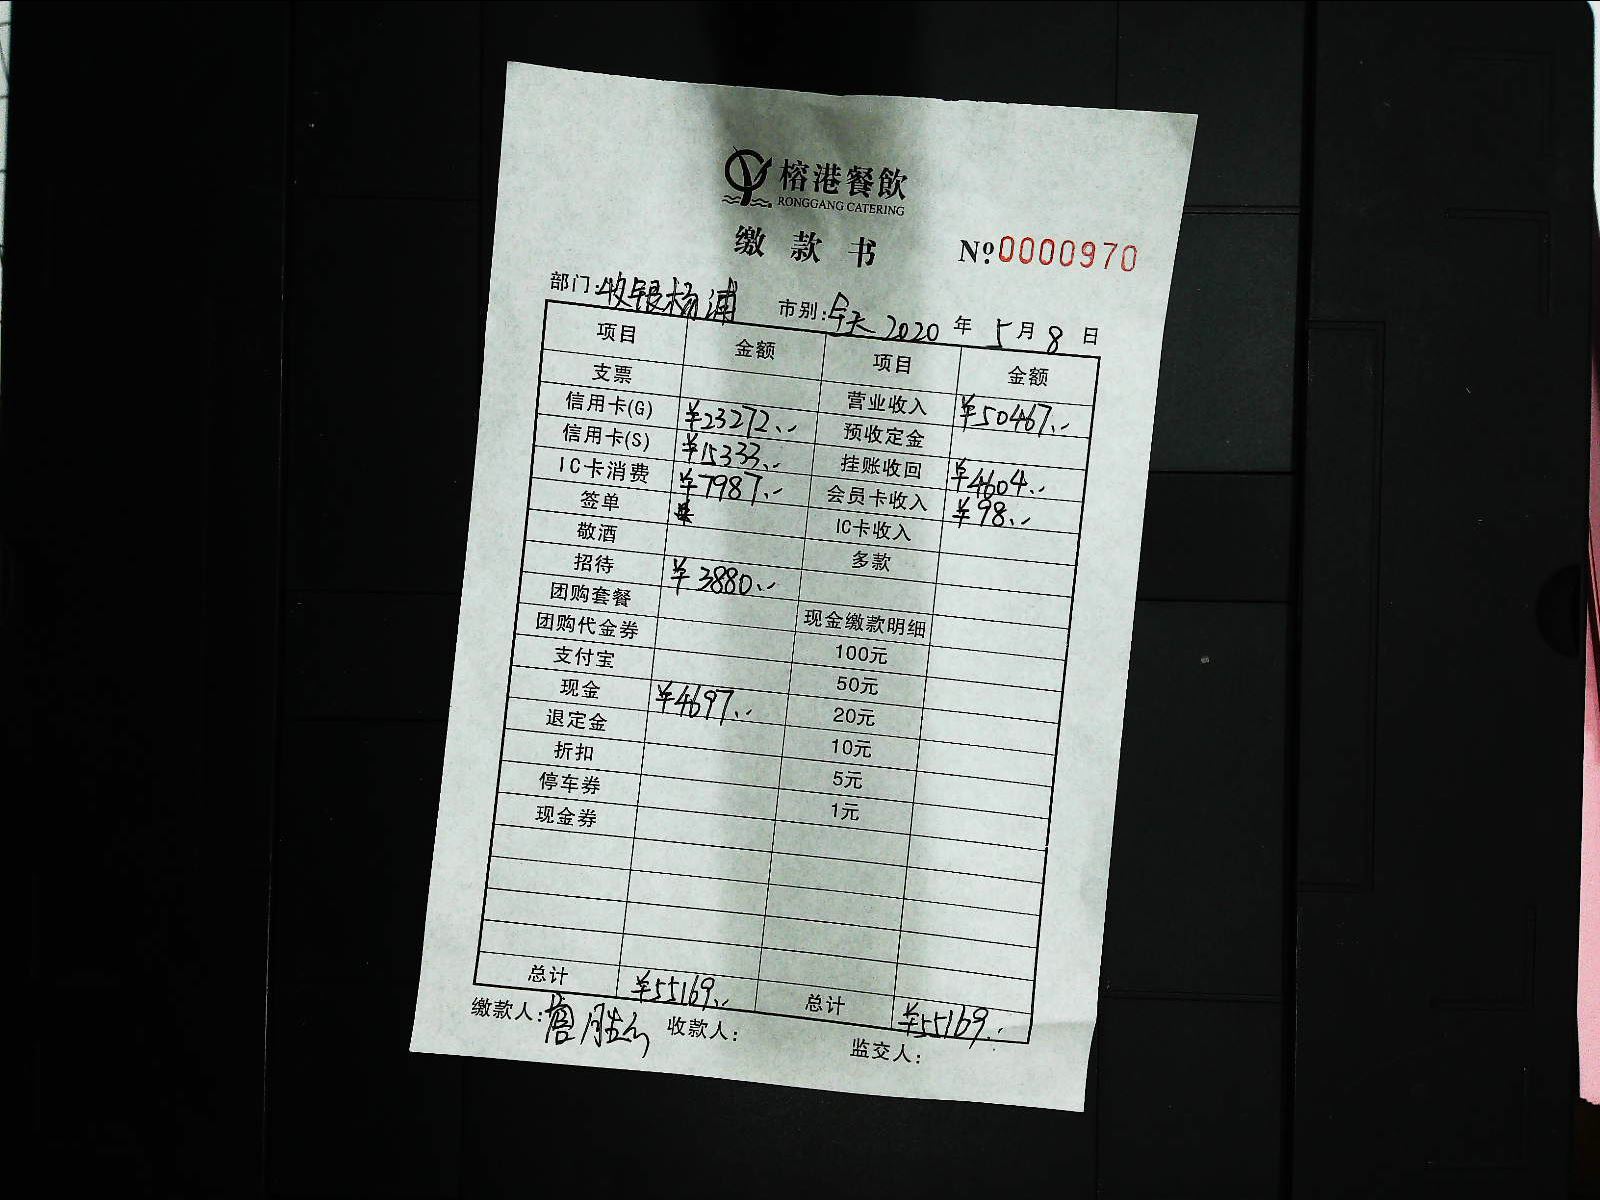 榕港餐飲
RONGGANG CATERING
缴款书 Nº0000970
部门:收银杨浦 市别:全天 2020年5月8日
项目 金额 项目 金额
支票 营业收入 ¥50467.-
信用卡(G) ¥23272.- 预收定金
信用卡(S) ¥15333.- 挂账收回 ¥4604.-
IC卡消费 ¥7987.- 会员卡收入 ¥98.-
签单 IC卡收入
敬酒 多款
招待 ¥3880.-
团购套餐 现金缴款明细
团购代金券 100元
支付宝 50元
现金 ¥4697.- 20元
退定金 10元
折扣 5元
停车券 1元
现金券
总计 ¥55169.- 总计 ¥55169.-
缴款人: 收款人: 监交人: